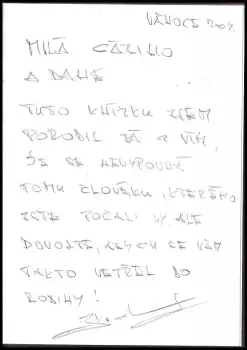 VÁNOCE 2004.
MILÁ
A DANE
TUTO KNÍŽKU JSEM
PORODIL JÁ A VÍM,
ŽE SE NEVYROVNÁ
TOMU ČLOVĚKU, KTERÉHO
JSTE POČALI VY, ALE
DOVOLTE, ABYCH SE VÁM
TAKTO VETŘEL DO
RODINY!